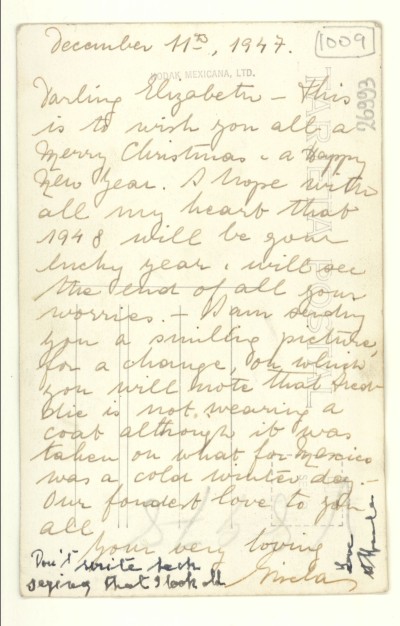 December 11th, 1947.
1009
KODAK MEXICANA, LTD.
TARJETA POSTAL
Darling Elizabeth – This
is to wish you all a
Merry Christmas & a Happy
New Year. I hope with
all my heart that
1948 will be your
lucky year & will see
the end of all your
worries. – I am sending
you a smiling picture,
for a change, on which
you will note that Fredr
die is not wearing a
coat although it was
taken on what for Mexico
was a cold winter day –
Our fondest love to you
all
Your very loving
Gisela
Don't write back
saying that I look ill
Love